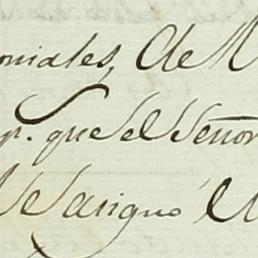 oniales, de M
p. que el Señor
se asignó el